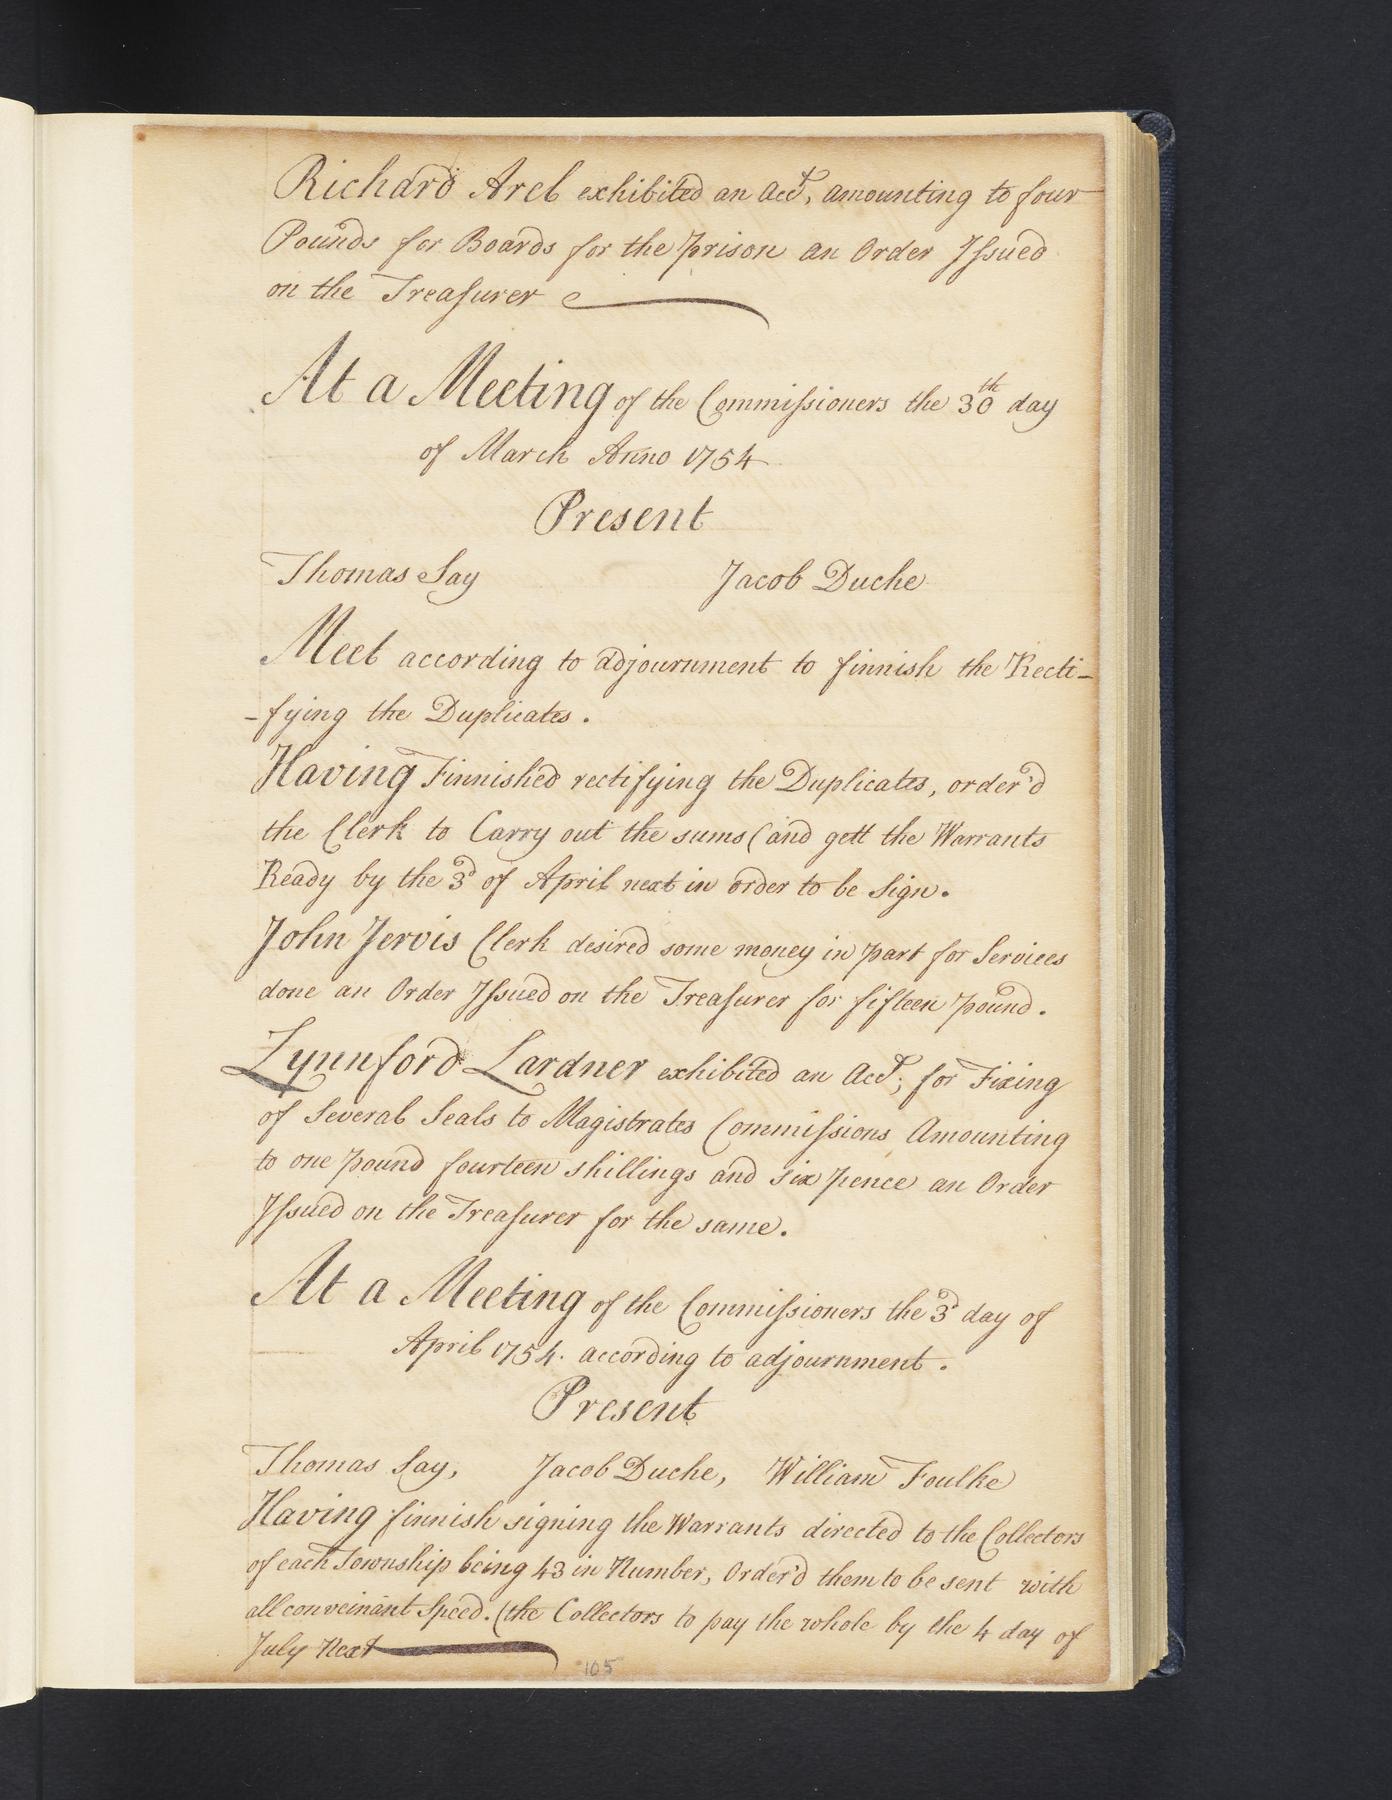 Richard Arel exhibited an Acct, amounting to four
Pounds for Boards for the prison an Order Issued
on the Treasurer
At a Meeting of the Commissioners the 30th day
of March Anno 1754
Present
Thomas Say Jacob Duche
Meet according to adjournment to finnish the Recti-
-fying the Duplicates.
Having Finnished rectifying the Duplicates, order'd
the Clerk to Carry out the sums (and gett the Warrants
Ready by the 3d of April next in order to be Sign.
John Jervis Clerk desired some money in part for Services
done an Order Issued on the Treasurer for fifteen pound.
Lynnford Lardner exhibited an Acct; for Fixing
of Several Seals to Magistrates Commissions Amounting
to one pound fourteen shillings and six pence an Order
Issued on the Treasurer for the same.
At a Meeting of the Commissioners the 3d day of
April 1754. according to adjournment.
Present
Thomas Say, Jacob Duche, William Foulke
Having finnish signing the Warrants directed to the Collectors
of each Township being 43 in Number, Order'd them to be sent with
all conveinant Speed. (the Collectors to pay the whole by the 4 day of
July Next
105